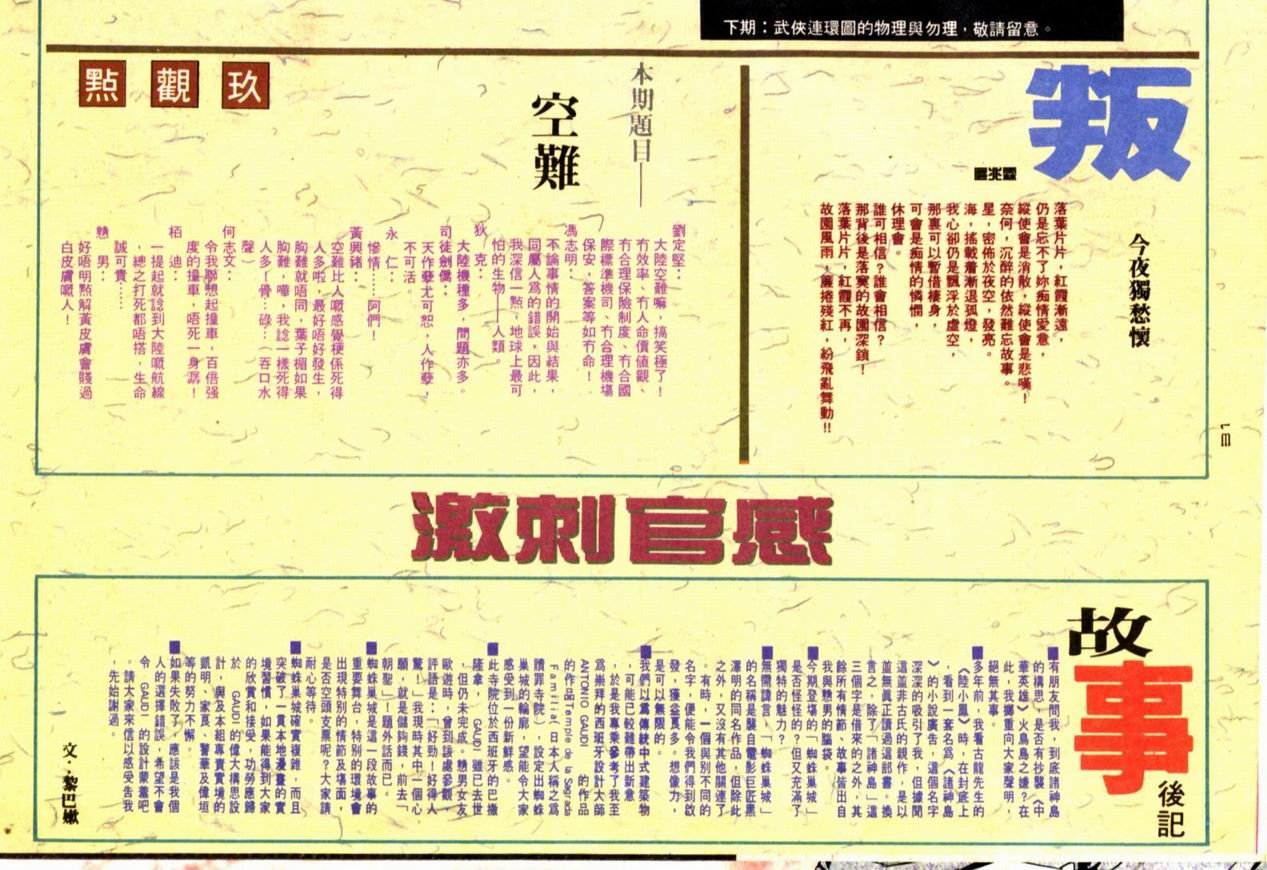 下期：武俠連環圖的物理與勿理，敬請留意。
叛
今夜獨愁懷
落葉片片，紅霞漸遠，
仍是忘不了妳痴情愛意，
縱使會是消散，縱使會是悲嘆！
奈何，沉醉的依然難忘故事。
星，密佈於夜空，發亮。
海，搖載着漸退孤燈，
我心卻仍是飄浮於虛空，
那裏可以暫借棲身，
可會是痴情的憐憫，
休理會。
誰可相信？誰會相信？
那背後是落寞的故園深鎖！
落葉片片，紅霞不再，
故園風雨，簾捲殘紅，紛飛亂舞動!!
玖觀點
本期題目——
空難
劉定堅：
大陸空難嘛，搞笑極了！
冇效率、冇人命價值觀、
冇合理保險制度、冇合國
際標準機司、冇合理機場
保安，答案等如冇命！
馮志明：
不論事情的開始與結果，
同屬人爲的錯誤，因此，
我深信一點，地球上最可
怕的生物——人類。
狄克：
大陸機種多，問題亦多。
司徒劍僑：
天作孽尤可恕，人作孽，
不可活。
永仁：
慘情……阿們！
黃興豬：
空難比人嘅感覺梗係死得
人多啦，最好唔好發生，
胸難就唔同，葉子楣如果
胸難，嘩，我諗一樣死得
人多！骨…碌…（吞口水
聲）
何志文：
令我聯想起撞車，百倍強
度的撞車，唔死一身潺！
栢迪：
一提起就諗到大陸嘅航線
，總之打死都唔搭，生命
誠可貴……
戇男：
好唔明點解黃皮膚會賤過
白皮膚嘅人！
31
激刺官感
故事後記
■有朋友問我，到底諸神島
的構思，是否有抄襲《中
華英雄》火鳥島之嫌？在
此，我擲重向大家聲明，
絕無其事。
■多年前，我看古龍先生的
《陸小鳳》時，在封底上
，看到一套名爲《諸神島
》的小說廣告，這個名字
深深的吸引了我，但據聞
這並非古氏的親作，是以
並無眞正讀過這部書。換
言之，除了「諸神島」這
三個字是借來的之外，其
餘所有情節、故事皆出自
我與戇男的腦袋。
■今期登場的「蜘蛛巢城」
是否怪怪的？但又充滿了
獨特的魅力？
■無需諱言，「蜘蛛巢城」
的名稱是襲自電影巨匠黑
澤明的同名作品，但除此
之外，又沒有其他關連了
。有時，一個與別不同的
名字，便能令我們得到啟
發，獲益良多。想像力，
是可以無限的。
■我們以爲傳統中式建築物
，可能已較難帶出新意
，於是我專乘參考了我至
爲崇拜的西班牙設計大師
ANTONIO GAUDI 的作品
的作品Temple de la Sagrada
Familia（日本人稱之爲
贖罪寺院），設定出蜘蛛
巢城的輪廓，望能令大家
感受到一份新鮮感。
■此寺院位於西班牙的巴撒
隆拿，GAUDI 雖已去世
，但仍未完成。戇男女友
歐遊時，曾到該處參觀，
評語是：「好勁！好得人
驚！」我現時其中一個心
願，就是儲夠錢，前去「
朝聖」！題外話而已。
■蜘蛛巢城是這一段故事的
重要舞台，特別的環境會
出現特別的情節及場面，
是否空頭支票呢？大家請
耐心等待。
■蜘蛛巢城確實複雜，而且
突破了一貫本地漫畫的實
境習慣，如果能得到大家
的欣賞和接受，功勞應歸
於 GAUDI 的偉大構思設
計，與及本組專責實境的
凱明、家良、警華及偉垣
等的努力不懈。
■如果失敗了，應該是我個
人的選擇錯誤，希望不會
令 GAUDI 的設計蒙羞吧
。請大家來信以感受告我
，先始謝過。
文：黎巴嫩